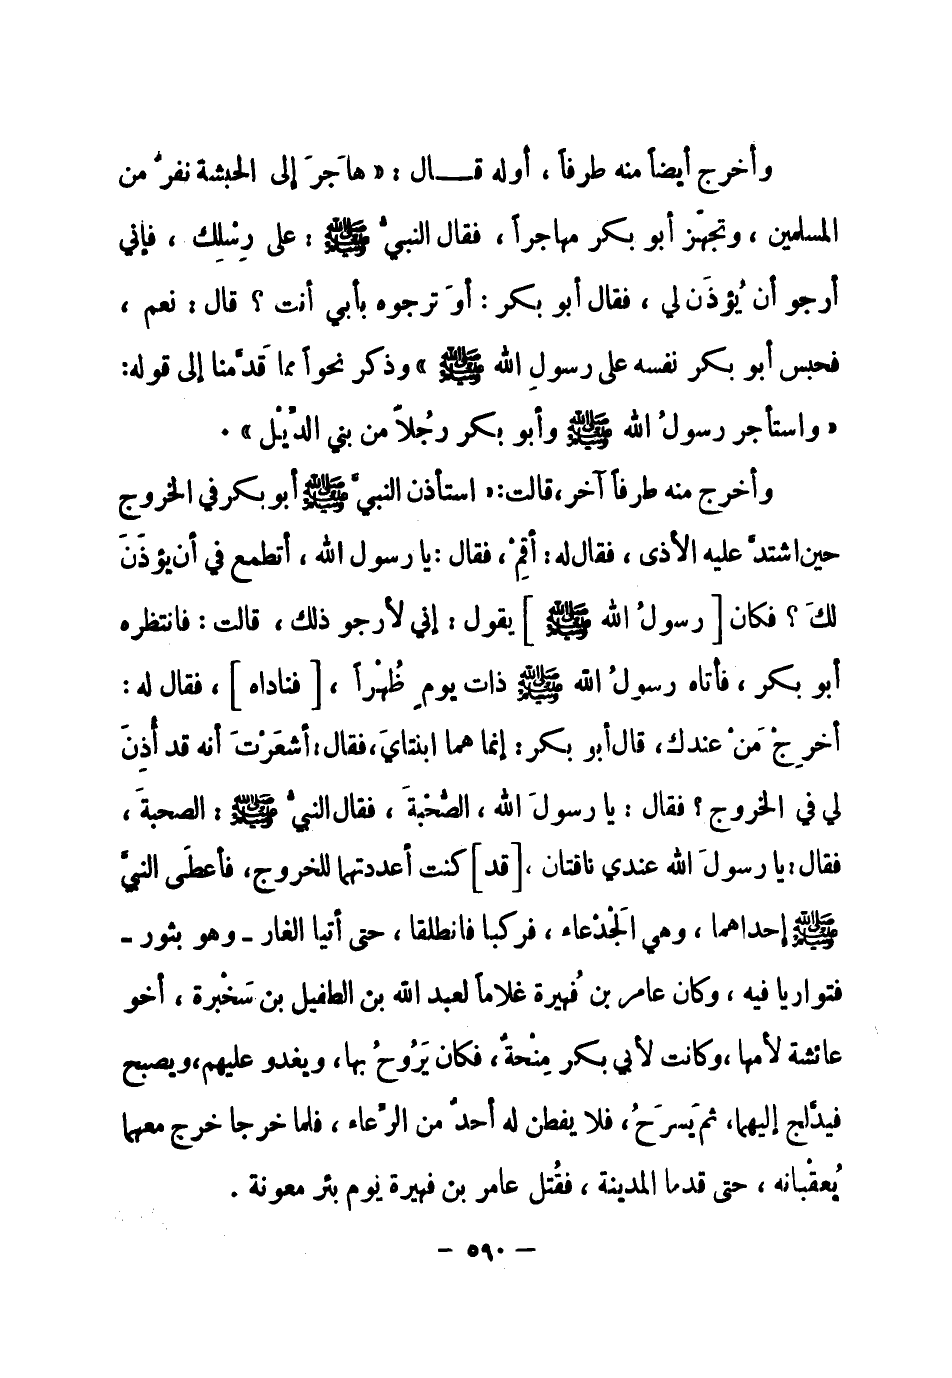 وأخرج أيضاً منه طرفاً ، أوله قـــال : « هاَجرَ إلى الحبشة نفرٌ من
المسلمين ، وتجهّز أبو بكر مهاجراً ، فقال النبيُّ ﷺ : على رِسْلِك ، فإني
أرجو أن يُؤذَن لي ، فقال أبو بكر : أوَ ترجوه بأبي أنت ؟ قال : نعم ،
فحبس أبو بكر نفسه على رسولِ الله ﷺ » وذكر نحواً مما قَدَّمنا إلى قوله:
« واستأجر رسولُ الله ﷺ وأبو بكر رجُلاً من بني الدِّيْل » .
وأخرج منه طرفاً آخر ،قالت: « استأذن النبيَّ ﷺ أبو بكر في الخروج
حين اشتدَّ عليه الأذى ، فقال له : أقِمْ ، فقال : يا رسول الله ، أتطمع في أن يؤذَنَ
لكَ ؟ فكان [ رسولُ الله ﷺ ] يقول : إني لأرجو ذلك ، قالت : فانتظره
أبو بكر ، فأتاه رسولُ الله ﷺ ذات يومٍ ظُهْراً ، [ فناداه ] ، فقال له :
أخرِجْ مَنْ عندك ، قال أبو بكر : إنما هما ابنتايَ ،فقال : أشعَرْتَ أنه قد أُذِنَ
لي في الخروج ؟ فقال : يا رسولَ الله ، الصُّحْبَةَ ، فقال النبيُّ ﷺ : الصحبةَ ،
فقال : يا رسولَ الله عندي ناقتان ، [ قد ] كنت أعددتهما للخروج ، فأعطَى النبيَّ
ﷺ إحداهما ، وهي الَجْدْعاء ، فركبا فانطلقا ، حتى أتيا الغار ـ وهو بثور ـ
فتواريا فيه ، وكان عامر بن فُهيرة غلاماً لعبد الله بن الطفيل بن سَخْبرة ، أخو
عائشة لأمها ،وكانت لأبي بكر مِنْحةٌ ، فكان يَرُوحُ بها ، ويغدو عليهم ،ويصبح
فيدَّلج إليهما، ثم يَسرَحُ ، فلا يفطن له أحدٌ من الرِّعاء ، فلما خرجا خرج معهما
يُعقْبانه ، حتى قدما المدينة ، فقُتل عامر بن فهيرة يوم بئر معونة .
– ٥٩٠ –